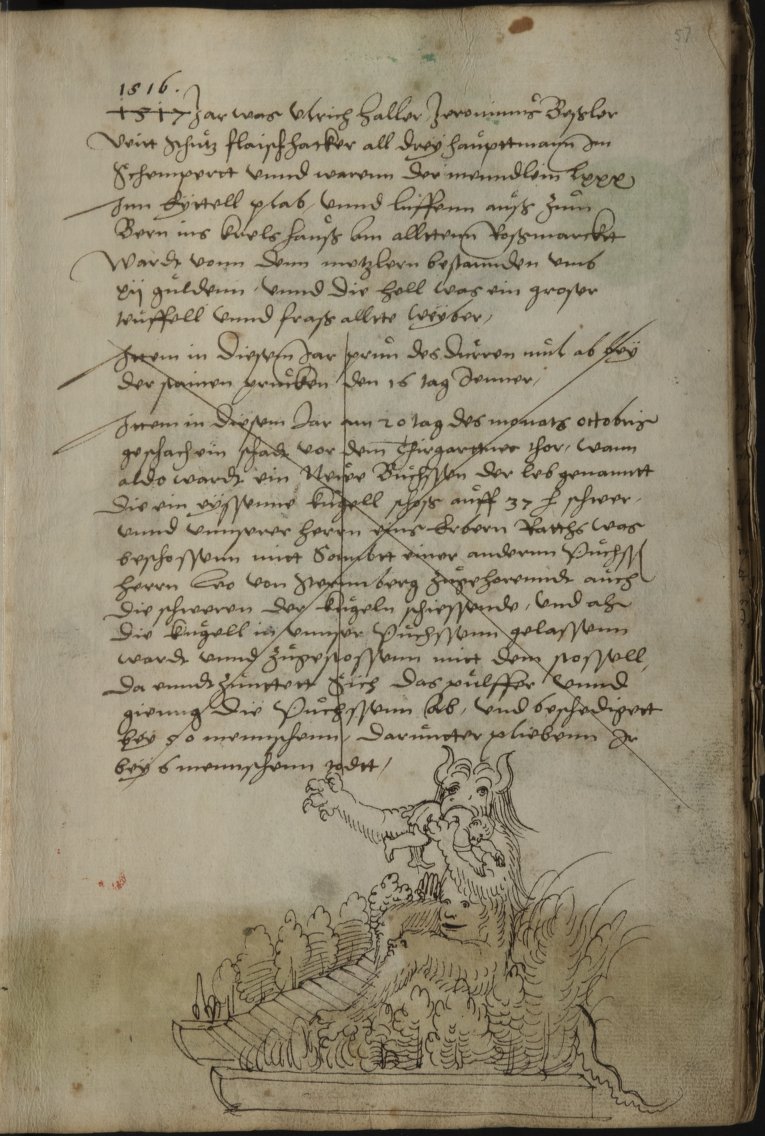 57
1516.
1517 Jar was Ulrich Haller Jeronimus Beßler
Veit Schutz flaischhacker all drey haupttmann Im
Schempertt unnd warenn der menndlein lxxx
Inn kyttell plab unnd luffenn auß zum
Bern ins hauß am alltenn Roßmarckt
Wardt vonn denn metzlern bestannden umb
xij guldenn, unnd die hell was ein groser
teuffell unnd fraß allte weyber,
Ittem in diesem Jar prun des durren mul ab bey
der stainen prucken den 16 tag Jenner,
Ittem in diesem Jar am 20 tag des monats octtobris
geschach ein schadt vor dem Thirgarttner thor, wann
aldo wardt ein Neue Buchssen der leb genanntt
die ein eyssenne kugell schoss auff 37 schwer,
unnd unnserer herrn eins Erbern Ratths was
beschossenn mitt Sambtt einer andernn Puchss
herrn Leo von Sternnberg zugeherenndt auch
die schweren der kugeln schiessende, und als
die kugell in unnser Puchssenn gelassenn
wardt unnd zugestossenn mitt dem stossell,
da enndtzunttett sich das pulffer unnd
gienng die Puchssenn ab, und beschedigett
bey 50 mennschenn, darunter pliebenn Ir
bey 6 mennschenn todtt,